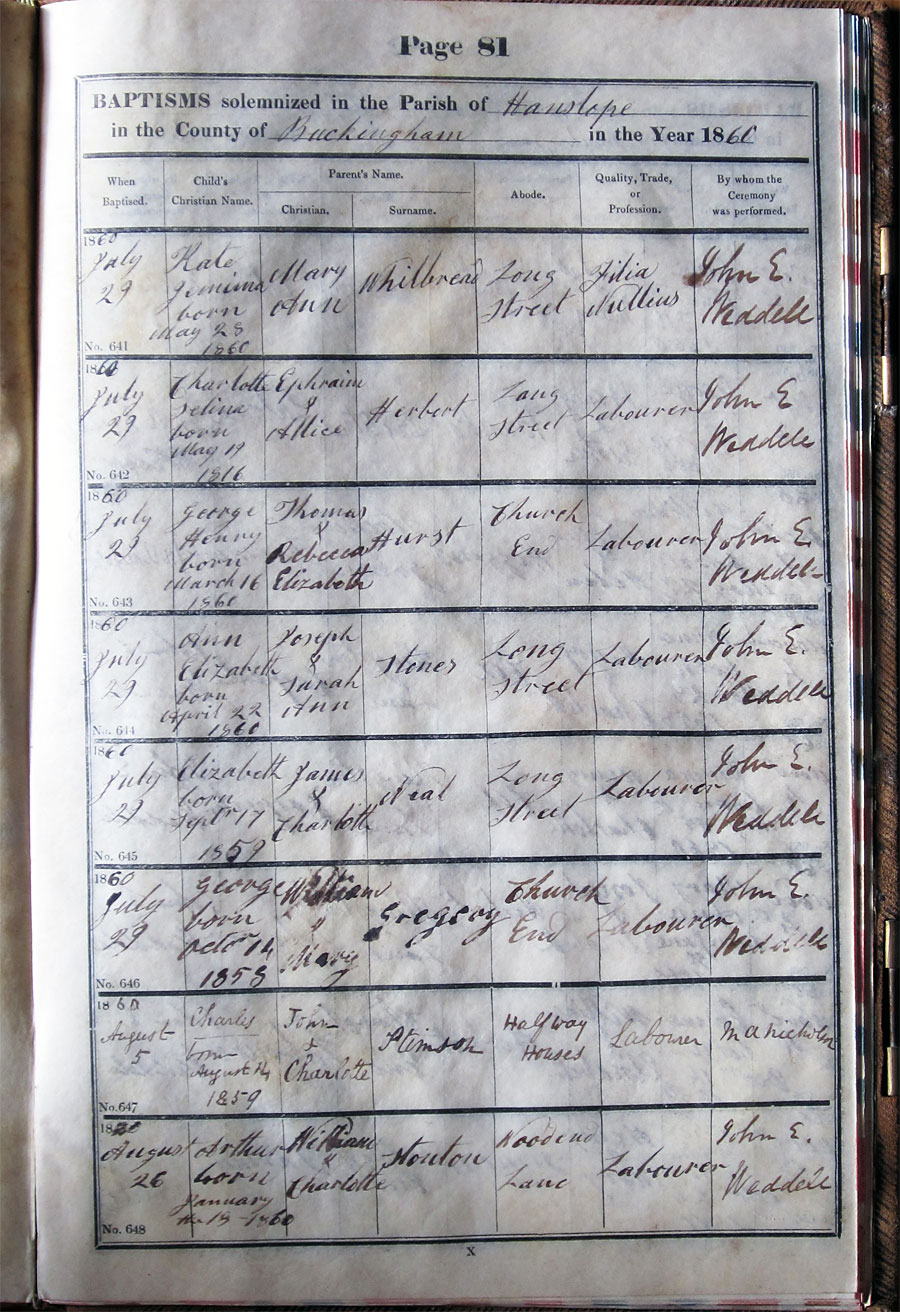 Page 81
BAPTISMS solemnized in the Parish of Hanslope
in the County of Buckingham in the Year 1860
When Baptised.
Child's Christian Name.
Parent's Name.
Christian.
Surname.
Abode.
Quality, Trade, or Profession.
By whom the Ceremony was performed.
1860
July 29
No. 641
Kate Jemima born May 28 1860
Mary Ann
Whitbread
Long Street
Filia Nullius
John E. Weddell
1860
July 29
No. 642
Charlotte Selina born May 19 1816
Ephraim & Allice
Herbert
Long Street
Labourer
John E Weddell
1860
July 29
No. 643
George Henry born March 16 1860
Thomas & Rebecca Elizabeth
Hurst
Church End
Labourer
John E. Weddell
1860
July 29
No. 644
Ann Elizabeth born April 22 1860
Joseph & Sarah Ann
Stones
Long Street
Labourer
John E. Weddell
1860
July 29
No. 645
Elizabeth born Septr 17 1859
James & Charlotte
Neal
Long Street
Labourer
John E. Weddell
1860
July 29
No. 646
George born Octor 14 1858
William & Mary
Gregory
Church End
Labourer
John E. Weddell
1860
August 5
No. 647
Charles born August 14 1859
John & Charlotte
Stimson
Halfway Houses
Labourer
M A Nicholson
1860
August 26
No. 648
Arthur born January the 18 1860
William & Charlotte
Stonton
Woodend Lane
Labourer
John E. Weddell
X